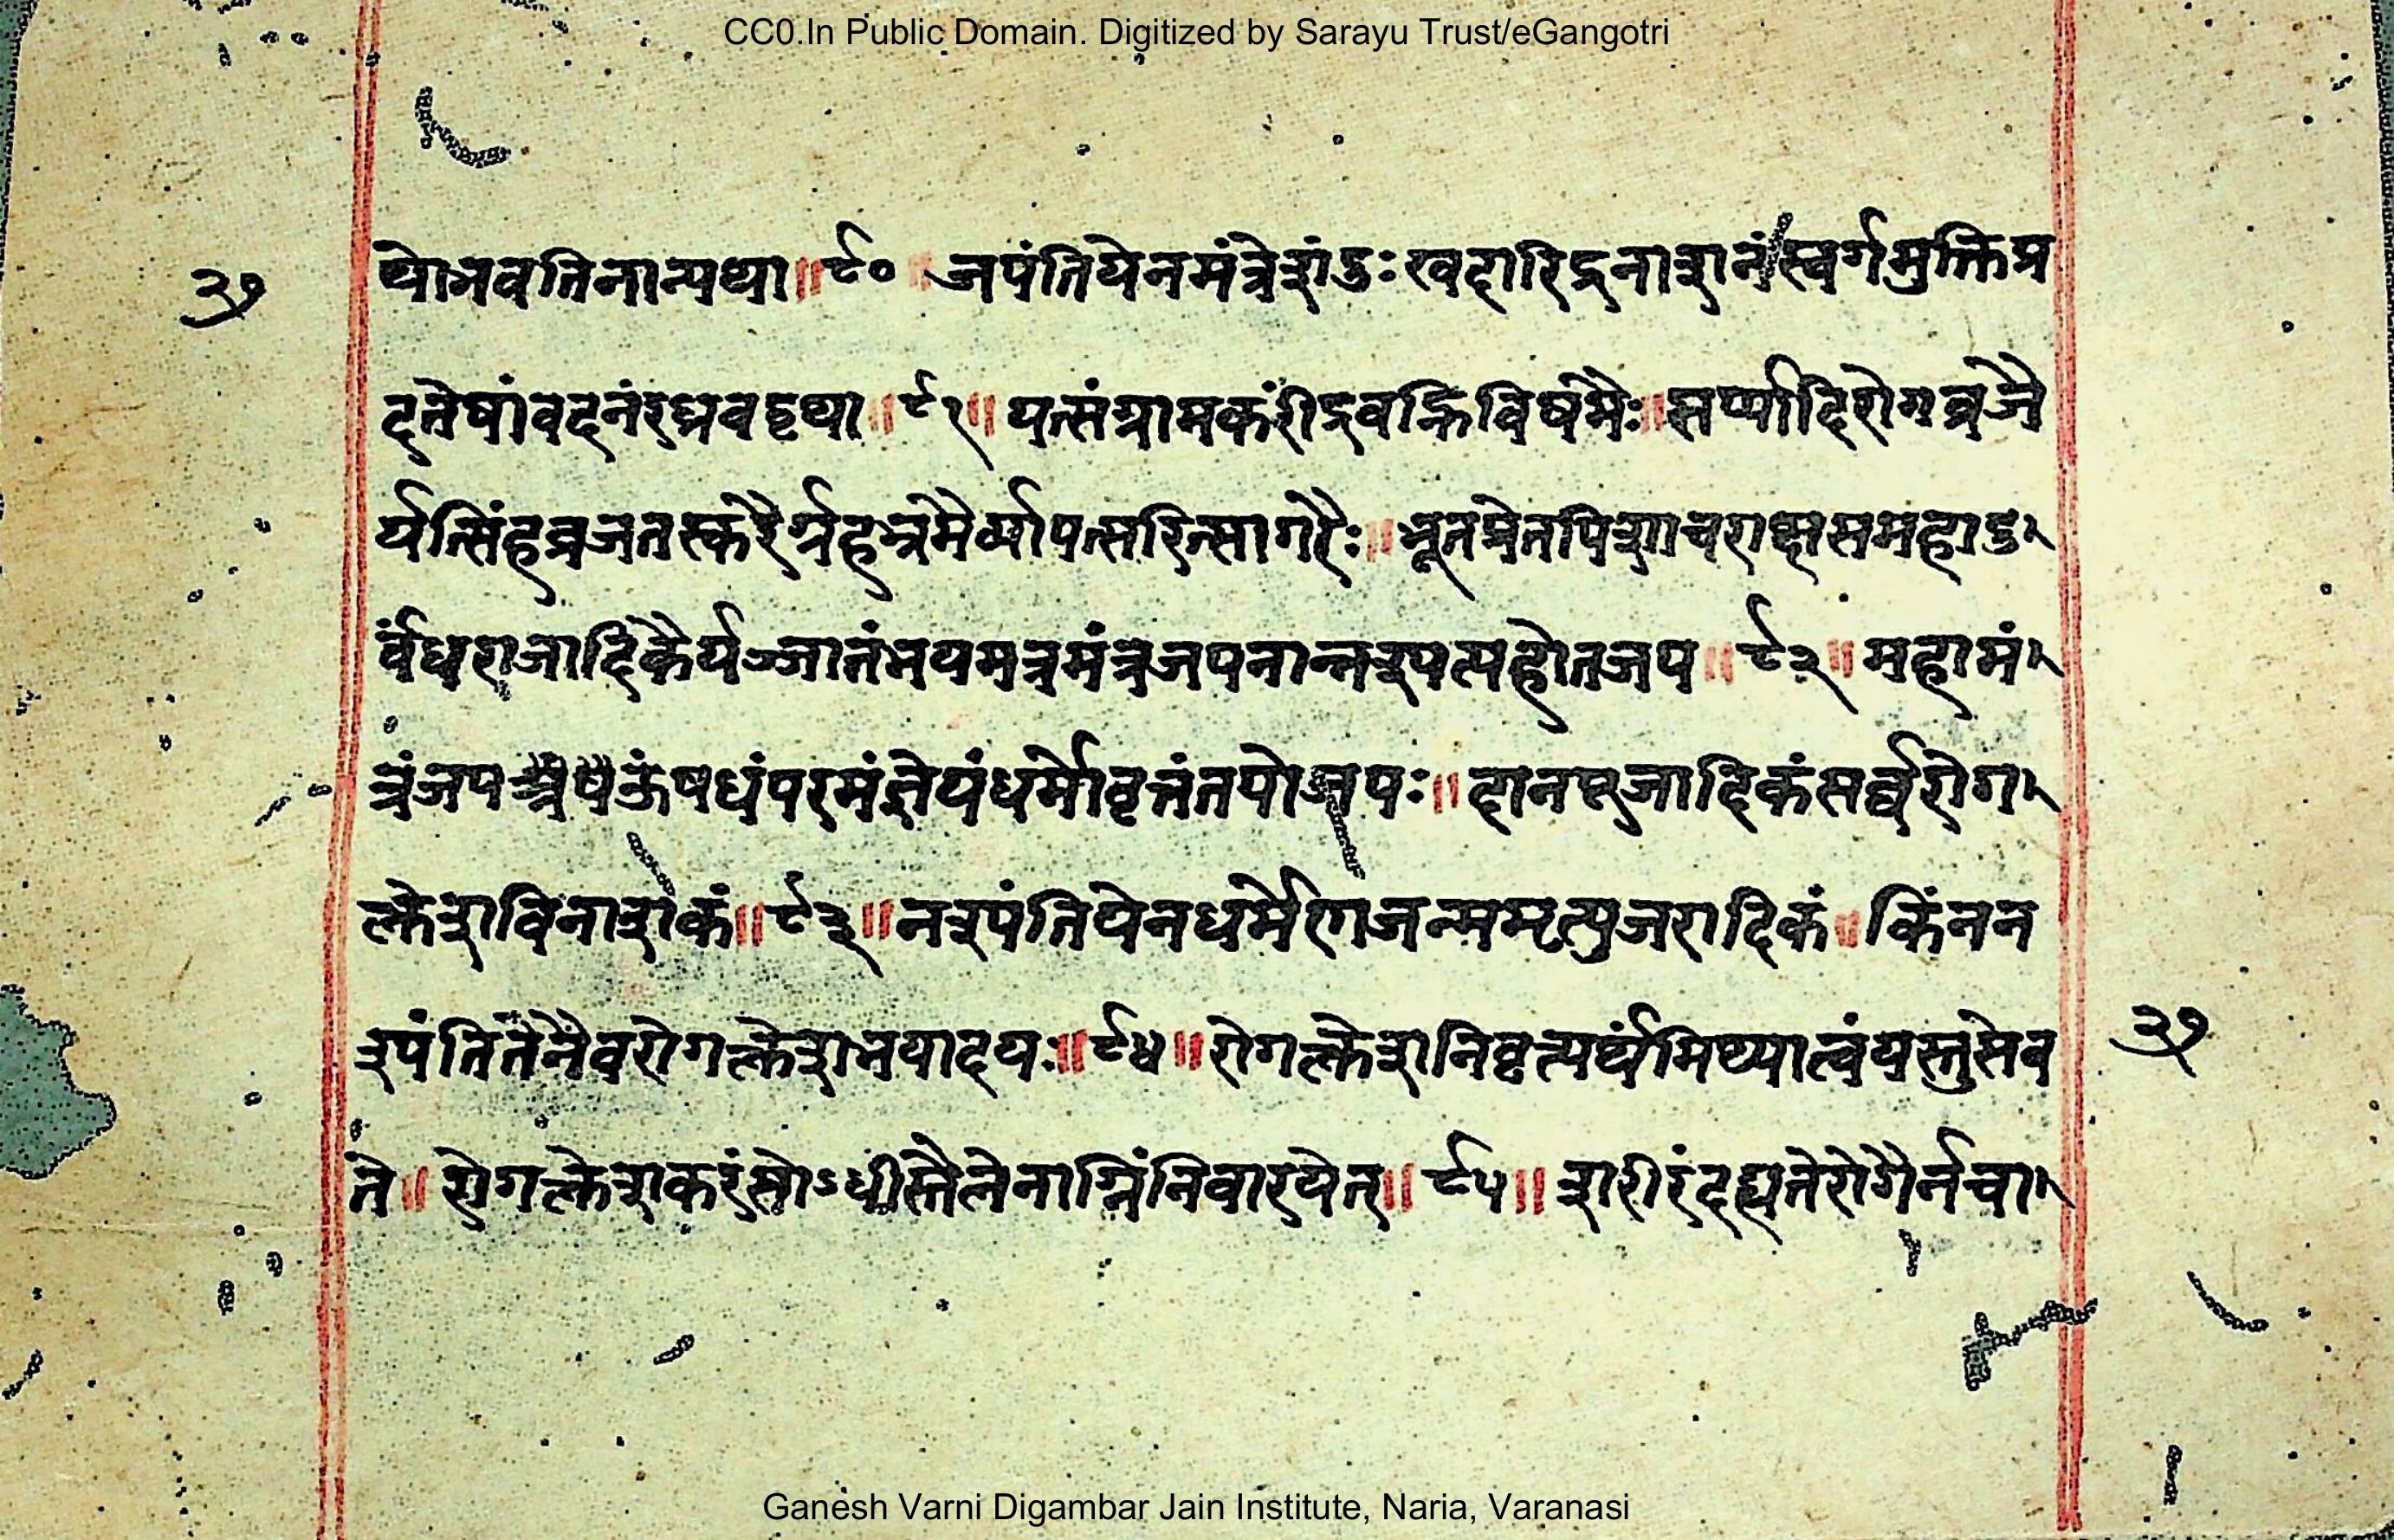 CC0.In Public Domain. Digitized by Sarayu Trust/eGangotri
थोभवतिनान्यथा॥९० जपंतियेनमंत्रेशंदुःखदारिद्रनाशनंस्वर्गमुक्तिप्र
३७
दतेषांवदनंरघ्रवद्वृथा॥९१॥यत्संग्रामकरींद्रवह्निविषमैः॥सर्प्पादिरोगव्रजै
र्यत्सिंहव्रजतस्करैर्ग्रहभ्रमैर्व्यापत्सरित्सागरैः॥भूतप्रेतपिशाचराक्षसमहादु
र्वंधराजादिकैर्यज्जातंभयमत्रमंत्रजपनान्नश्यत्यहोतज्जप॥९२॥महामं
त्रंजप ऊंषधंपरमंज्ञेयंधर्मोवृत्तंतपोजपः॥दानपूजादिकंसर्व्वरोग
क्लेशविनाशकं॥९३॥नश्यंतियेनधर्मेणजन्ममृत्युजरादिकं॥किंनन
श्यंतितेनैवरोगक्लेशभयादयः॥९४॥रोगक्लेशनिवृत्यर्थंमिथ्यात्वंयस्तुसेव
३७
ते॥रोगक्लेशकरंसोऽधीस्तैलेनाग्निंनिवारयेत्॥९५॥शरीरंदह्यतेरोगैर्नचा
Ganesh Varni Digambar Jain Institute, Naria, Varanasi